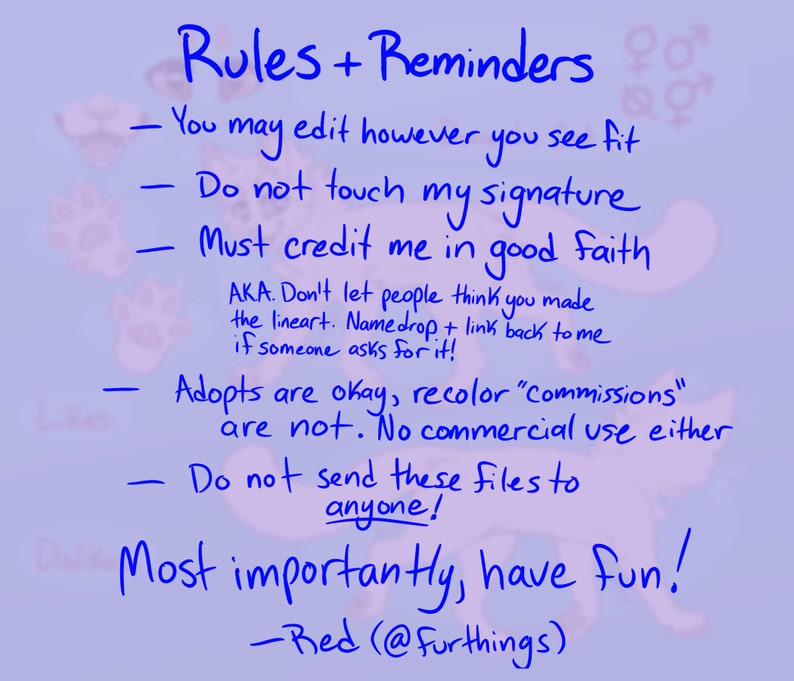 Rules + Reminders
— You may edit however you see fit
— Do not touch my signature
— Must credit me in good faith
AKA. Don't let people think you made
the lineart. Namedrop + link back to me
if someone asks for it!
— Adopts are okay, recolor "commissions"
are not. No commercial use either
— Do not send these files to
anyone!
Likes:
Dislikes:
Most importantly, have fun!
—Red (@furthings)